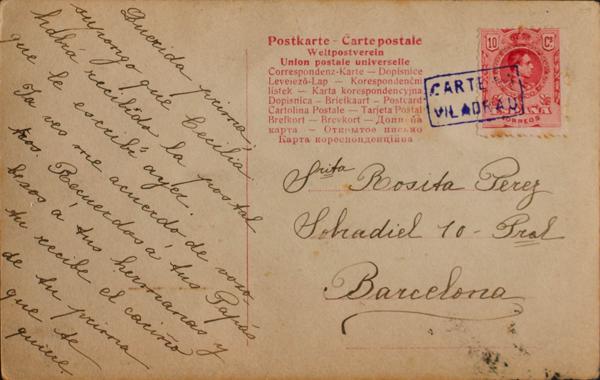 Querida prima,
supongo que Cecilia
habrá recibido la postal
que le escribí ayer.
Ya ves me acuerdo de voso
tros. Recuerdos a tus Papás
besos a tus hermanas y
tu recibe el cariño
de tu prima
que te
quiere.
Postkarte - Carte postale
Weltpostverein
Union postale universelle
Correspondenz-Karte — Dopisnice
Levelező-Lap — Korespondenční
listek — Karta korespondencyjna
Dopisnica — Briefkaart — Postcard
Cartolina Postale — Tarjeta Postal
Brefkort — Brevkort — Дописна
карта — Открытое письмо
Карта кореспонденциина
10 Cs
CORREOS
CARTERIA
VILADRAU
Srita Rosita Perez
Sobradiel 10 - Pral
Barcelona